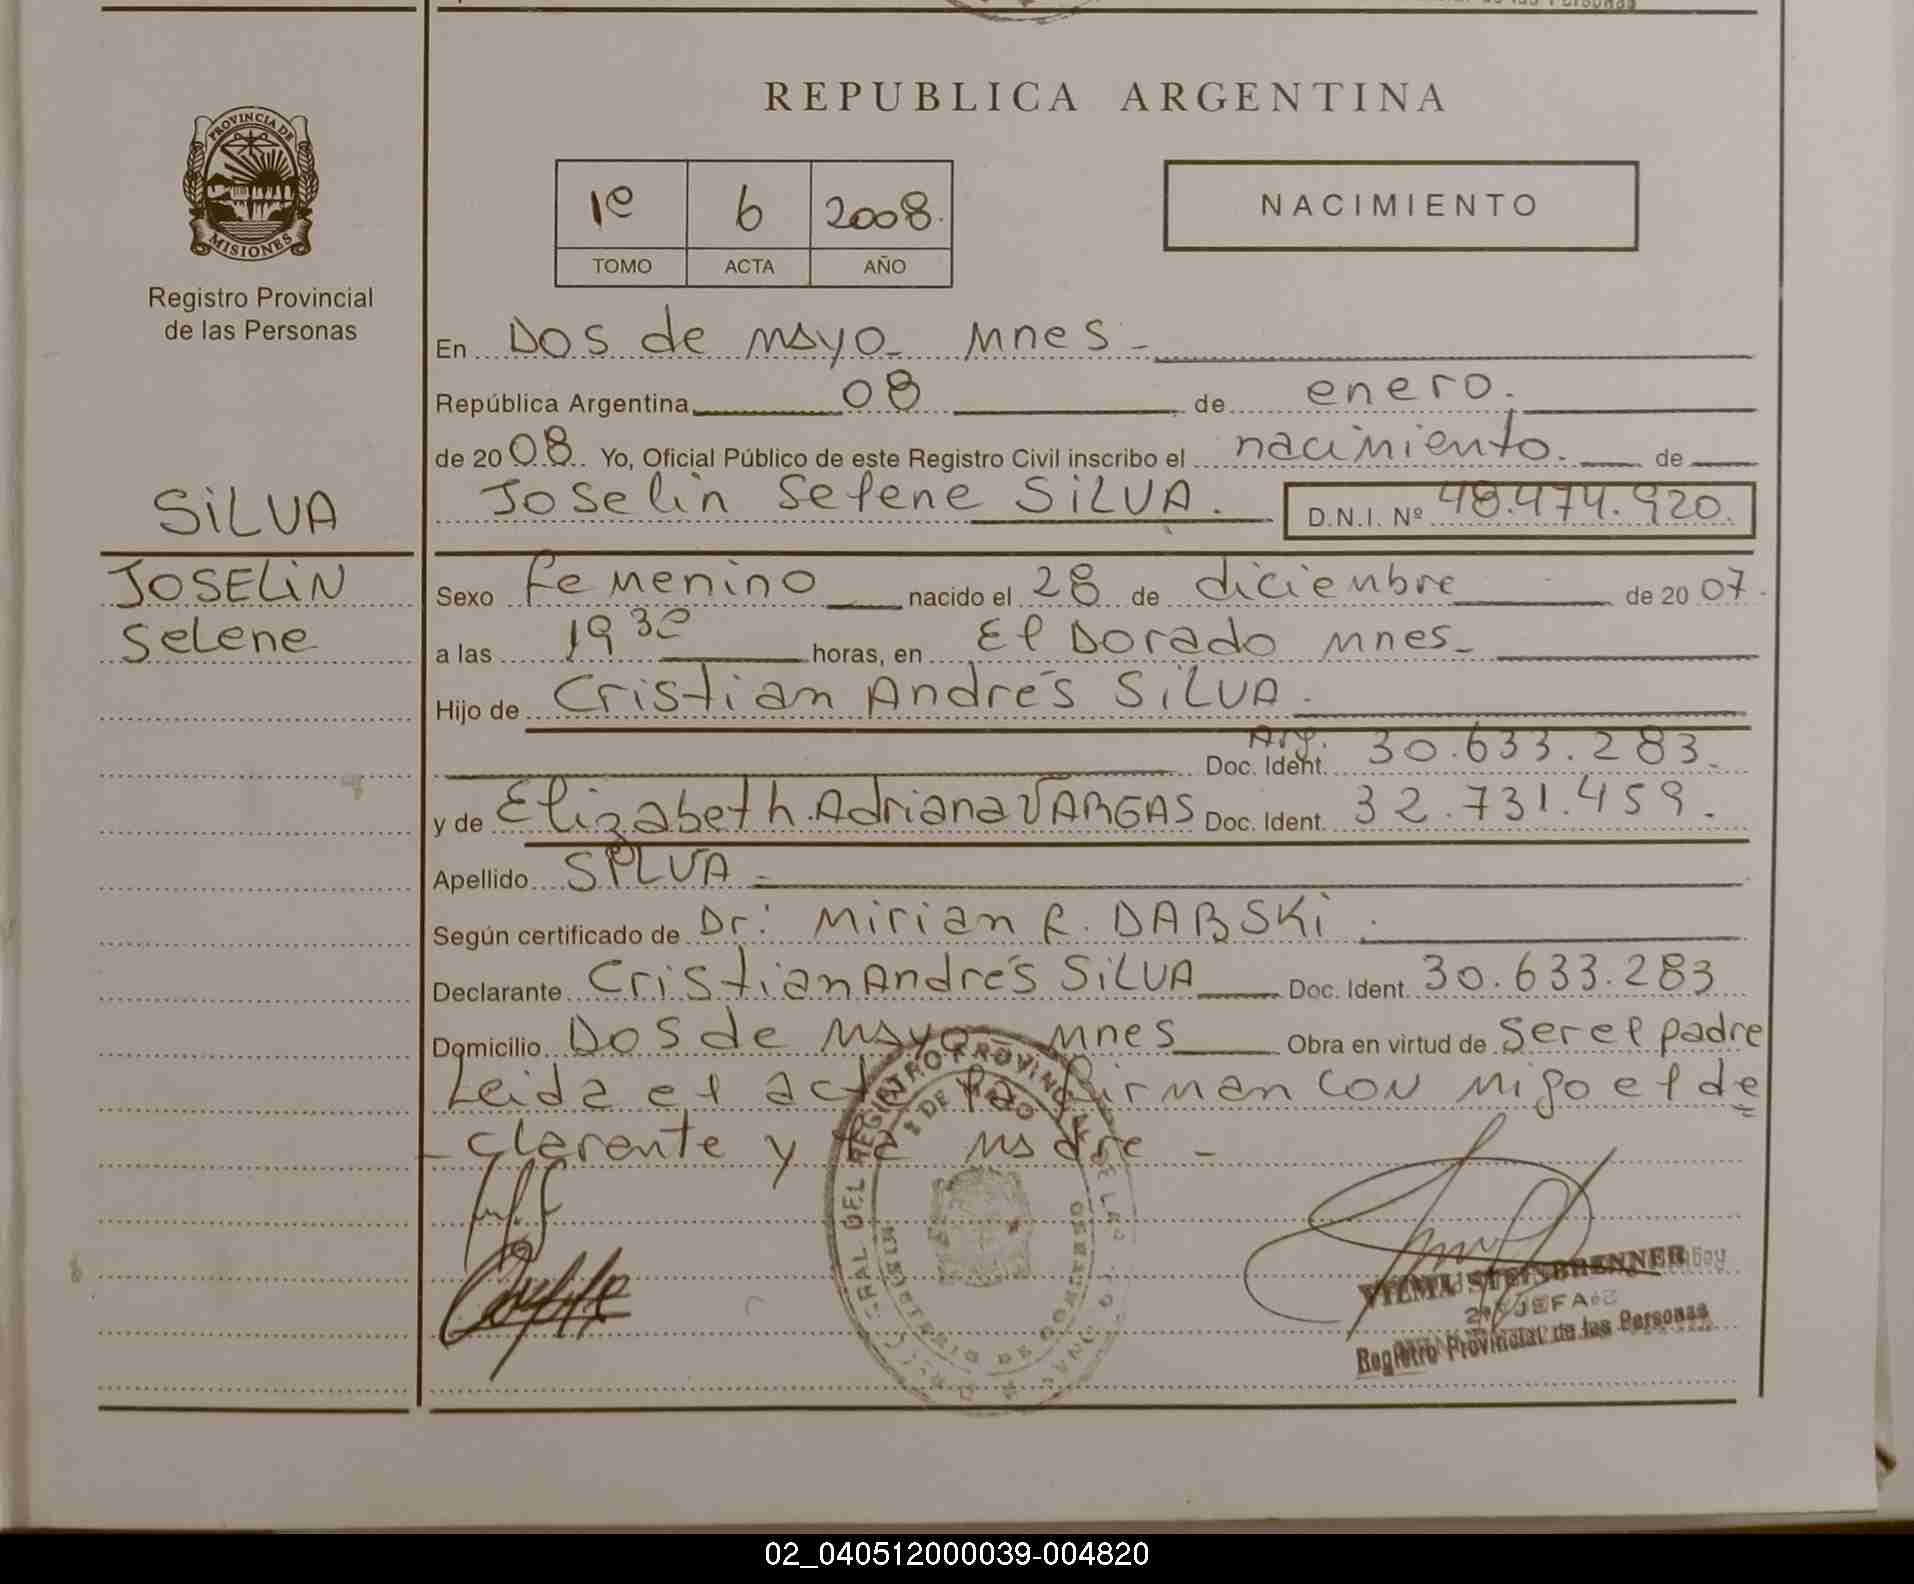 REPUBLICA ARGENTINA
PROVINCIA DE
MISIONES
Registro Provincial
de las Personas
1º 6 2008.
TOMO ACTA AÑO
NACIMIENTO
SILVA
JOSELIN
Selene
En Dos de mayo - Mnes -
República Argentina, 08 de enero.
de 2008. Yo, Oficial Público de este Registro Civil inscribo el nacimiento. de
Joselin Selene SILVA. D.N.I. Nº 48.474.920.
Sexo femenino nacido el 28 de diciembre de 2007.
a las 19 30 horas, en El Dorado Mnes -
Hijo de Cristian Andrés SILVA.
Arg.
Doc. Ident. 30.633.283.
y de Elizabeth Adriana VARGAS Doc. Ident. 32.731.459.
Apellido SILVA -
Según certificado de Dr: Mirian R. DABSKI.
Declarante Cristian Andrés SILVA Doc. Ident. 30.633.283
Domicilio Dos de mayo Mnes Obra en virtud de ser el padre
Leida el acta la firman con migo el de
- clarente y la madre -
VILMA STEINBRENNER
JEFA
Registro Provincial de las Personas
02_040512000039-004820